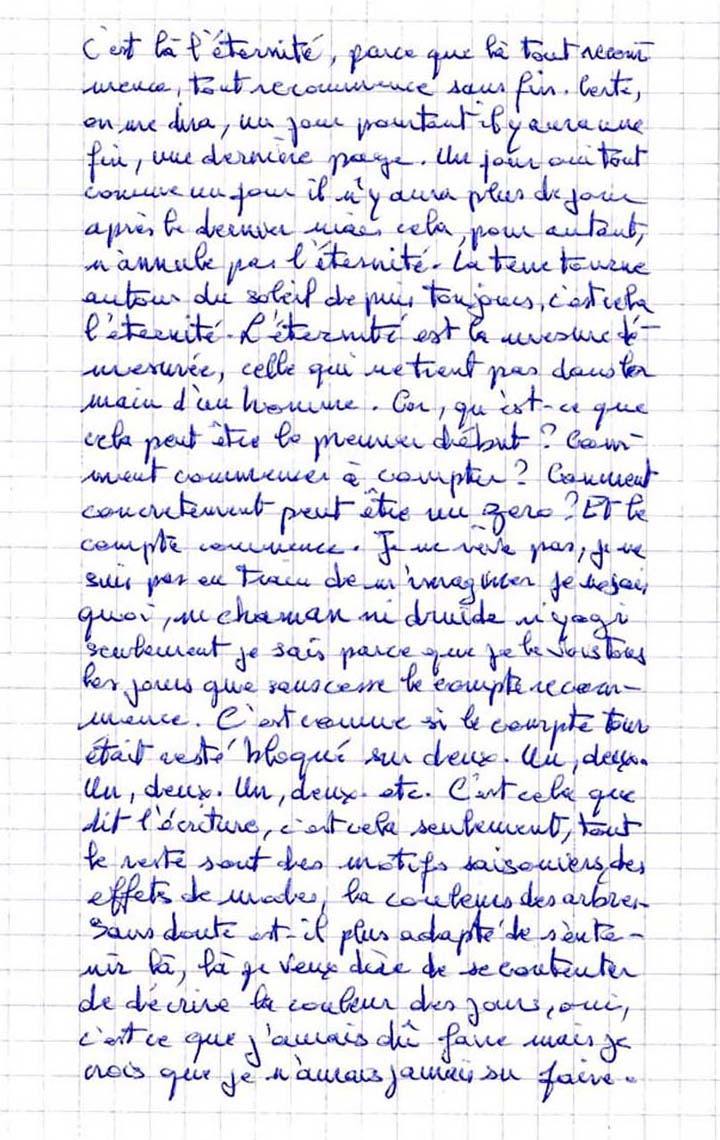 C'est là l'éternité, parce que là tout recom
mence, tout recommence sans fin. Certe,
on me dira, un jour pourtant il y aura une
fin, une dernière page. Un jour oui tout
comme un jour il n'y aura plus de jour
après le dernier mais cela, pour autant,
n'annule pas l'éternité. La terre tourne
autour du soleil depuis toujours, c'est cela
l'éternité. L'éternité est la mesure dé-
mesurée, celle qui ne tient pas dans la
main d'un homme. Car, qu'est-ce que
cela peut être le premier début ? Com-
ment commencer à compter ? Comment
concrètement peut être un zéro ? Et le
compte commence. Je ne rêve pas, je ne
suis pas en train de m'imaginer je ne sais
quoi, ni chaman ni druide ni yogi
seulement je sais parce que je le vois tous
les jours que sans cesse le compte recom-
mence. C'est comme si le compte tour
était resté bloqué sur deux. Un, deux.
Un, deux. Un, deux etc. C'est cela que
dit l'écriture, c'est cela seulement, tout
le reste sont des motifs saisoniers, des
effets de modes, la couleurs des arbres.
Sans doute est-il plus adapté de s'en te-
nir là, là je veux dire de se contenter
de décrire la couleur des jours, oui,
c'est ce que j'aurais dû faire mais je
crois que je n'aurais jamais su faire.